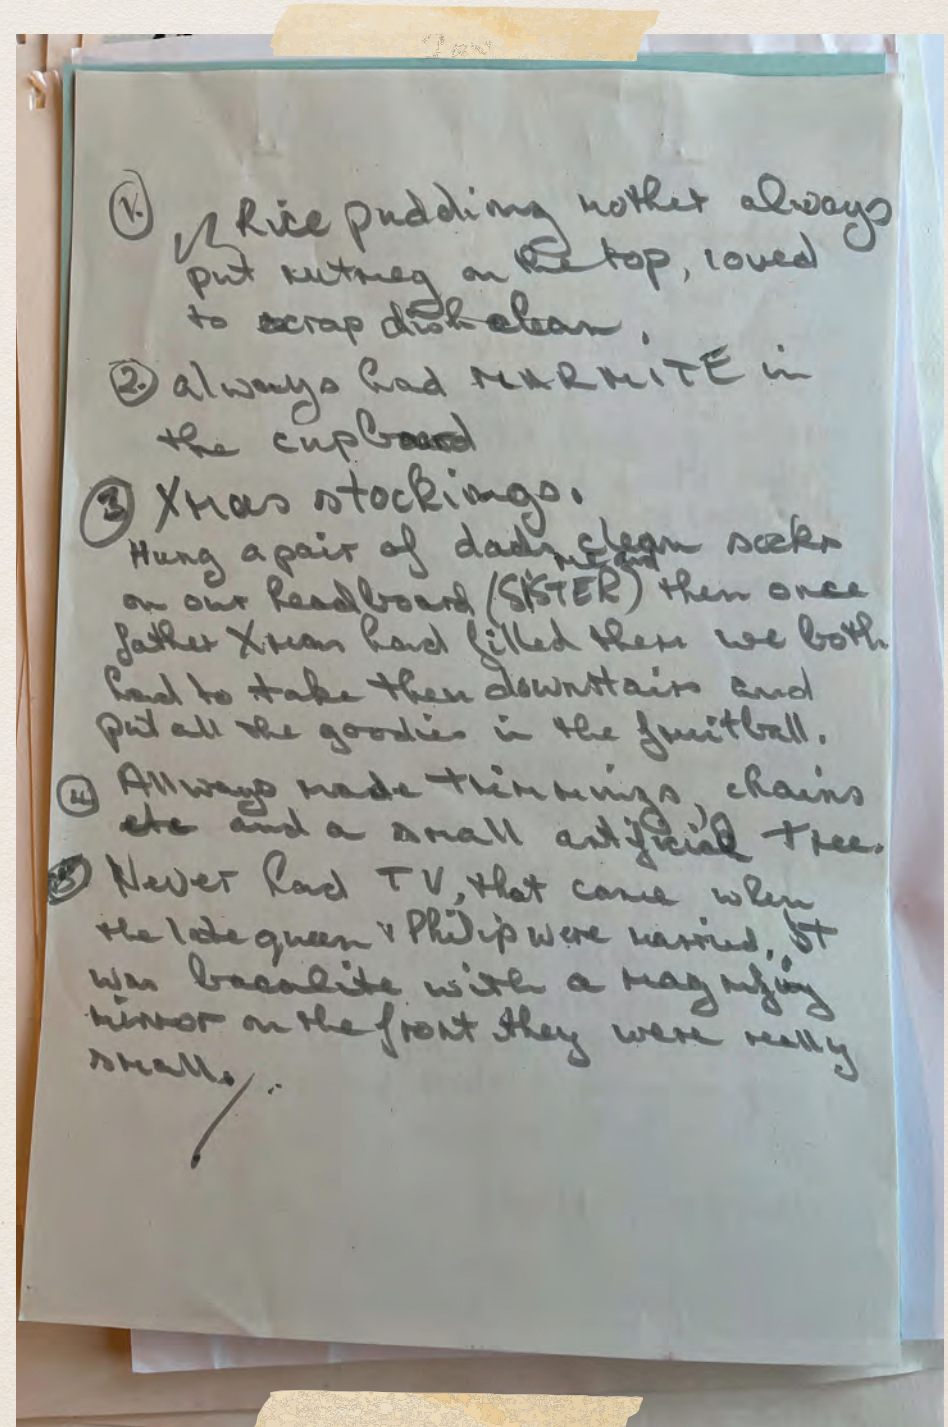 1. Rice pudding mother always
put nutmeg on the top, loved
to scrap dish clean.
2. always had MARMITE in
the cupboard
3 Xmas stockings.
Hung a pair of dads clean socks
me and
on our headboard (SISTER) then once
father Xmas had filled them we both
had to take them downstairs and
put all the goodies in the fruitball.
4 Allways made trimmings, chains
etc and a small artificial tree.
5 Never had TV, that came when
the late queen & Philip were married. It
was bacalite with a magnifying
mirror on the front they were really
small.